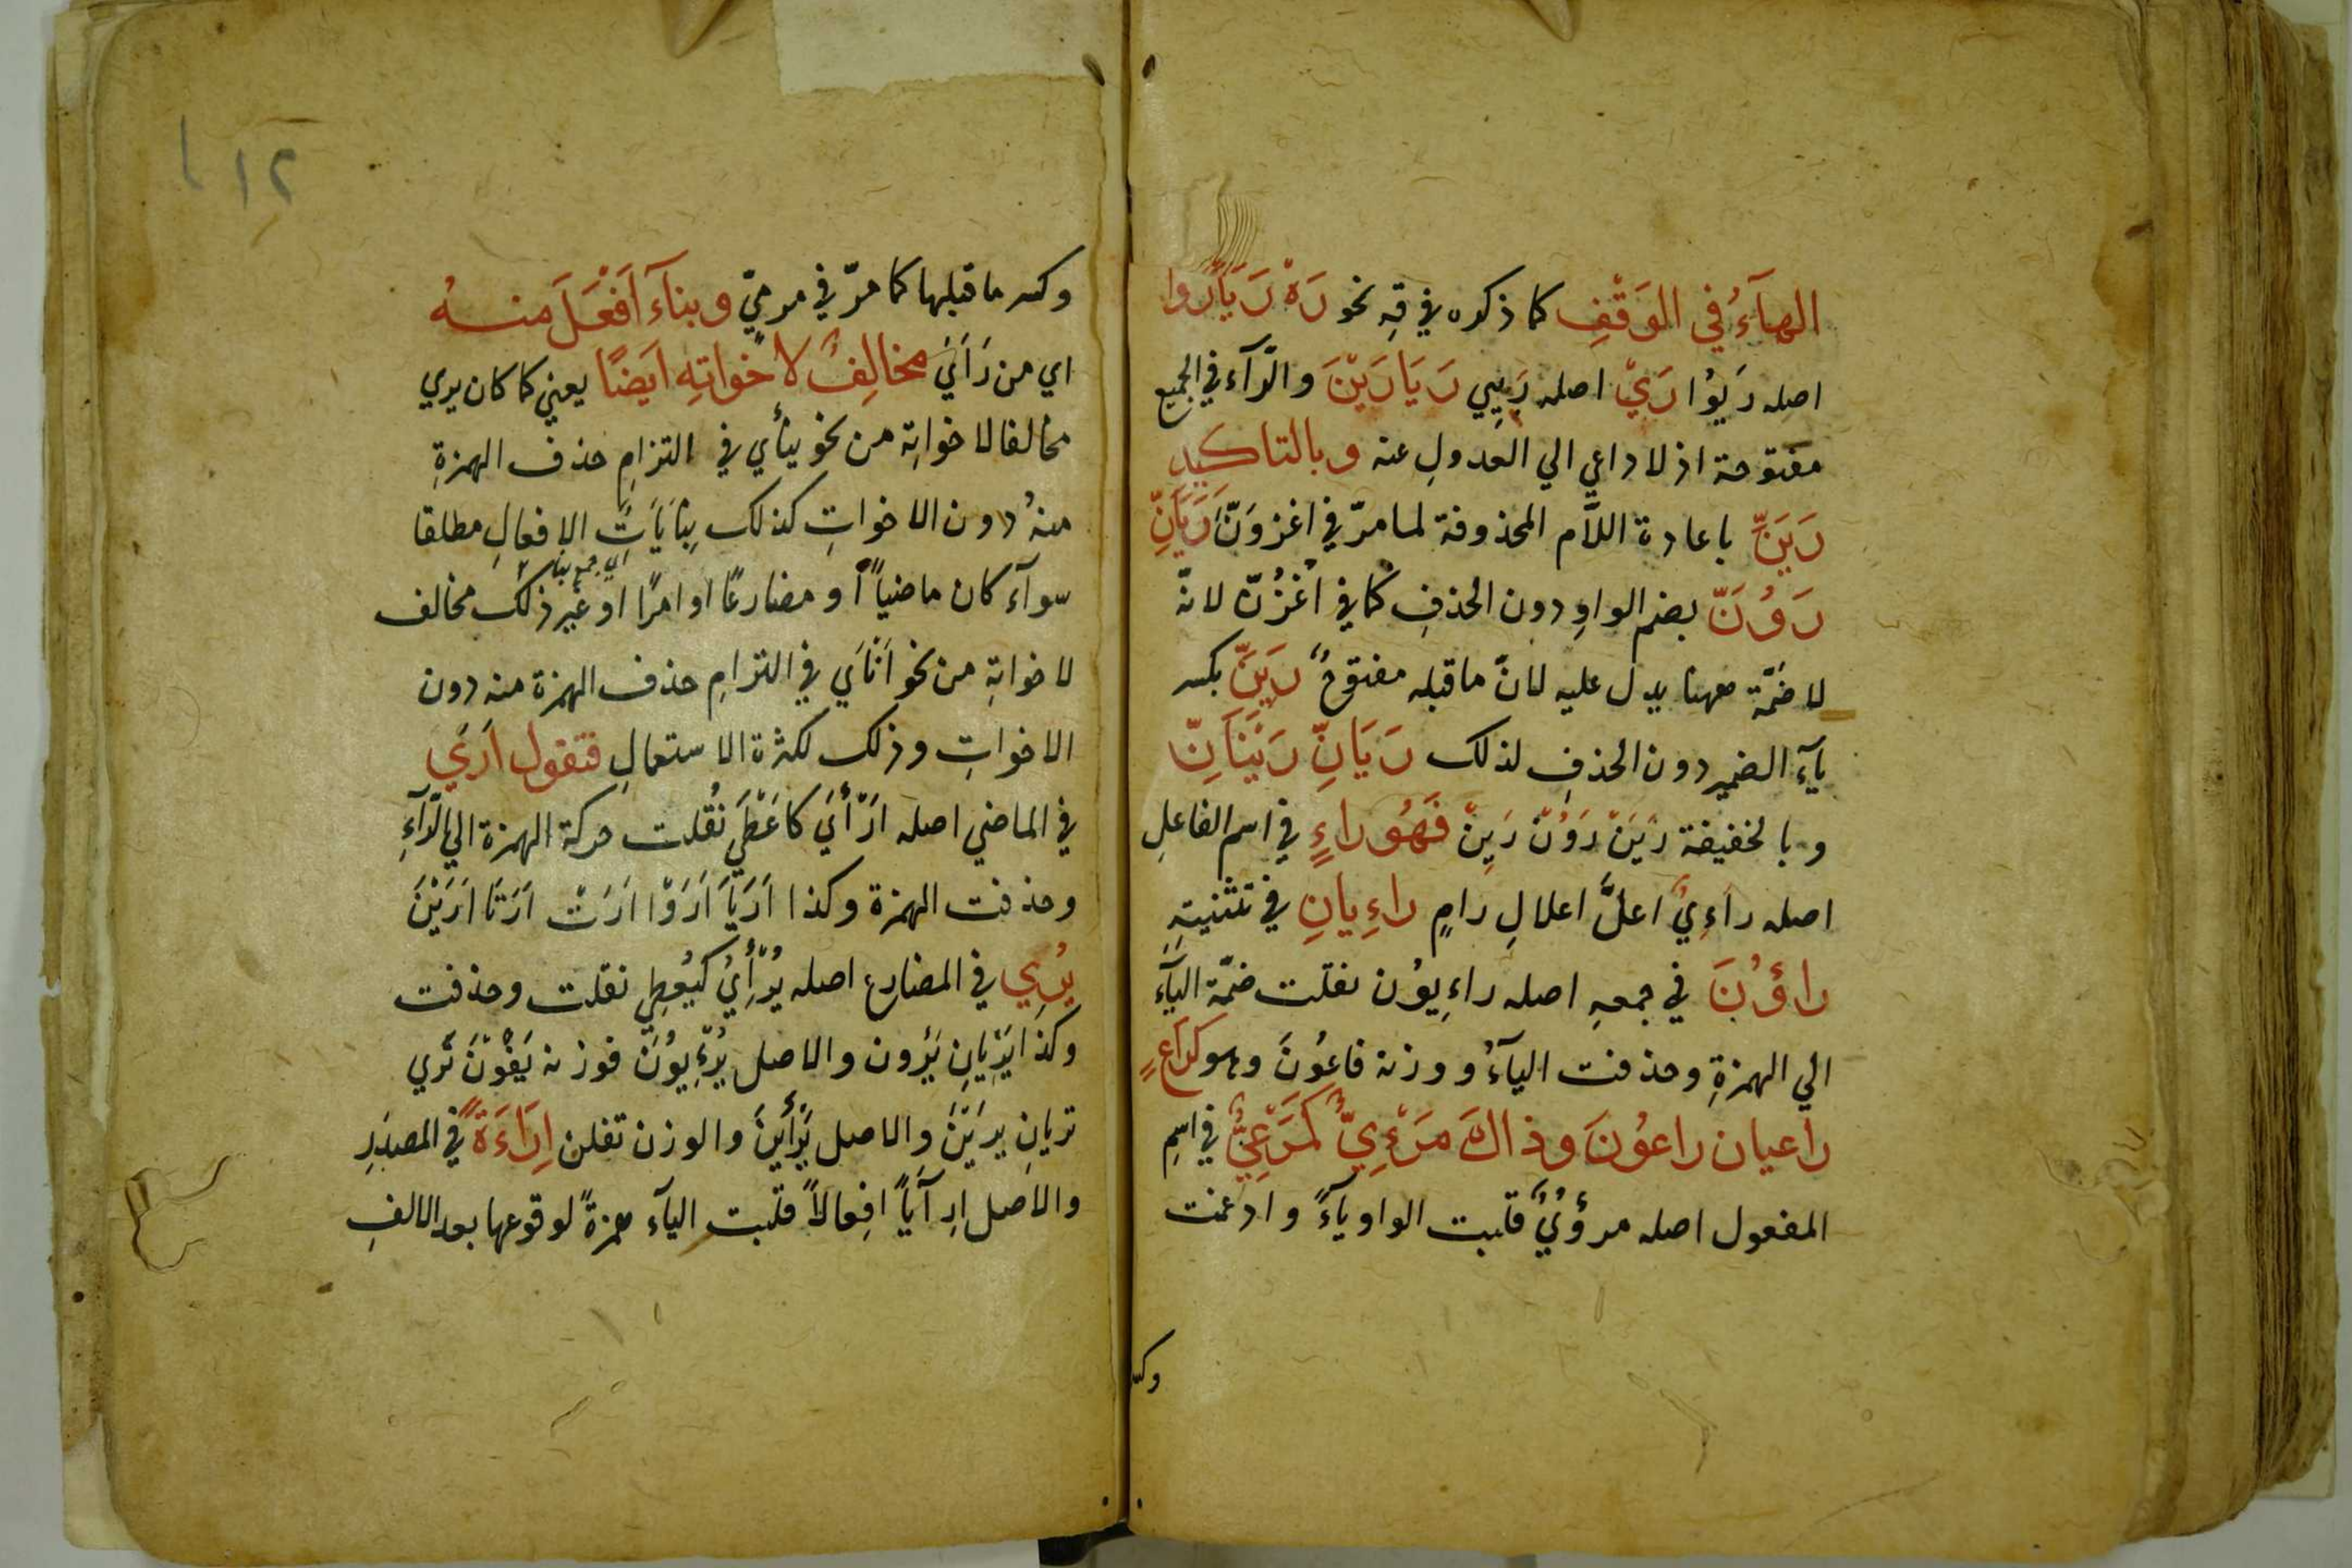 الهآءُ في الوَقْفِ كما ذكره في قِهِ نحو رَهْ رَيَا رَوا
اصله رَيوُا رَيْ اصله رَيِي رَيَا رَيْنَ والرّآء في الجميع
مفتوحة اذ لا داعي الي العدولِ عنه وبالتاكيدِ
رَيَنَّ باعادة اللاّم المحذوفة لما مرّ في اغزوَنَّ رَيَانِّ
رَوُنَّ بضم الواوِ دون الحذفِ كما في اُغْزُنّ لانّه
لا ضمّة ههنا يدل عليه لانّ ما قبله مفتوحٌ رَيِنَّ بكسر
يآءِ الضمير دون الحذفِ لذلك رَيَانِّ رَيْنَانِّ
وبالخفيفة رَيَنْ رَوُنْ رَيِنْ فَهُوَ راءٍ في اسم الفاعلِ
اصله راءِيٌ اعلَّ اعلالِ رامٍ راءِيانِ في تثنيتهِ
راؤُنَ في جمعهِ اصله راءِيوُن نقلت ضمّة اليآءِ
الي الهمزةِ وحذفت اليآءُ ووزنه فاعوُنَ وهو كراعٍ
راعيان راعوُنَ وذاكَ مَرْءِيٌّ كَمَرْعِيٌّ في اسمِ
المفعول اصله مرؤُيٌ قلبت الواو يآءً وادغمت
وكسـ
١٢
وكسر ما قبلها كما مرّ في مرميّ وبنآء اَفْعَلَ منهُ
اي من رَاَيَ مخالِفٌ لاخواتِهِ ايَضًا يعني كما كان يري
مخالفا لاخواتِه من نحو ينأي في التزامِ حذف الهمزةِ
منهُ دون الاخواتِ كذلك بِنايَاتُ الافعالِ مطلقا
اي جمع بناء
سوآء كان ماضيًا او مضارعًا او امرًا او غير ذلك مخالف
لاخواتِهِ من نحو اَنْاَيَ في التزامِ حذف الهمزة منه دون
الاخواتِ وذلك لكثرة الاستعمالِ فتقول اَرَي
في الماضي اصله اَرْأَيَ كاَعْطَيَ نُقلت حركة الهمزة الي الرّآءِ
وحذفت الهمزة وكذا اَرَيَا اَرَوْا اَرَتْ اَرَتَا اَرَيْنَ
يُرِي في المضارع اصله يُرْأِيُ كيُعطِي نقلت وحذفت
وكذا يُرِيانِ يُرُون والاصل يُرْءِيوُنَ فوزنه يَفُوْنَ تُري
تريانِ يريْنَ والاصل يُرْأِيْنَ والوزن تفلن اِرَاءَةً في المصدَرِ
والاصل اِرآيًا افِعالاً قلبت اليآء همزةً لوقوعها بعد الالفِ